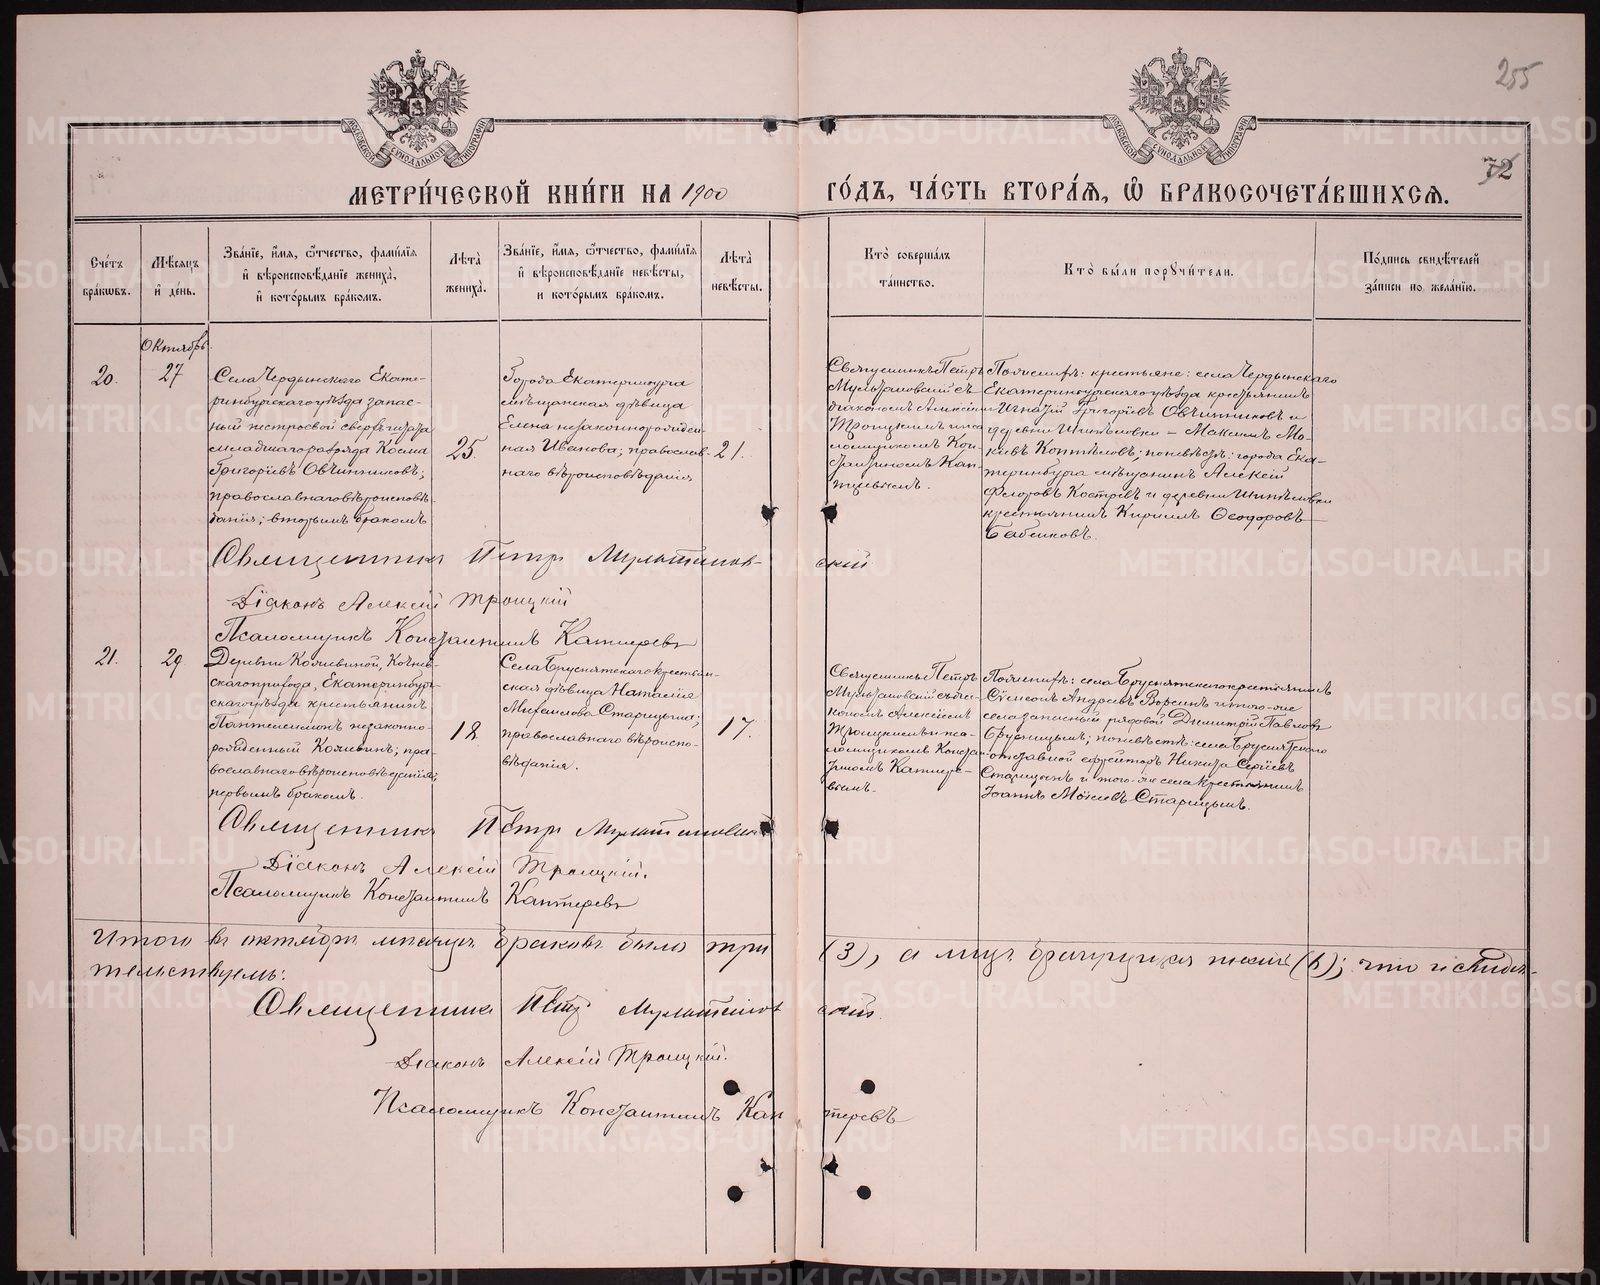 255
72
МЕТРИ́ЧЕСКОЙ КНИ́ГИ НА 1900 ГО́ДЪ, ЧА́СТЬ ВТОРА́Я, Ѽ БРАКОСОЧЕТА́ВШИХСЯ.
Сче́тъ
бра́кѡвъ.
Мѣ́сяцъ
и҆ де́нь.
Зва́нїе, и҆́мя, ѻ҆́тчество, фами́лїя
и҆ вѣроисповѣ́данїе жениха̀,
и҆ кото́рымъ бра́комъ.
Лѣ́та
жениха̀.
Зва́нїе, и҆́мя, ѻ҆́тчество, фами́лїя
и҆ вѣроисповѣ́данїе невѣ́сты,
и кото́рымъ бра́комъ.
Лѣ́та
невѣ́сты.
Кто̀ соверша́лъ
та́инство.
Кто̀ бы́ли порꙋчи́тели.
По́дпись свидѣ́телей
за́писи по жела́нїю.
Октябрь
20.
27
Села Чердынскаго Екате-
ринбургскаго уѣзда запас-
ный нестроевой
младшаго разряда Косма
Григоріевъ Овчинниковъ;
православнаго вѣроисповѣ-
данія; вторымъ бракомъ
25.
Города Екатеринбурга
мѣщанская дѣвица
Елена незаконнорожден-
ная Иванова; православ-
наго вѣроисповѣданія
21.
Священникъ Петръ
Мультановскій съ
діакономъ Алексіемъ
Троицкимъ и пса-
ломщикомъ Кон-
стантиномъ Кап-
теревымъ.
По женихѣ: крестьяне: села Чердынскаго
Екатеринбургскаго уѣзда крестьянинъ
Игнатій Григоріевъ Овчинниковъ и
деревни Шипѣловки – Максимъ Мо-
киевъ Коптѣловъ; по невѣстѣ: города Ека-
теринбурга мѣщанинъ Алексѣй
Федоровъ Костревъ и деревни Шипѣловки
крестьянинъ Кириллъ Ѳеодоровъ
Бабенковъ.
Священникъ Петръ Мультановскій
Діаконъ Алексій Троицкій
Псаломщикъ Константинъ Каптеревъ
21.
29
Деревни Кожевиной,
Екатеринбург-
скаго уѣзда крестьянинъ
Пантелеимонъ незаконно-
рожденный Кожевинъ; пра-
вославнаго вѣроисповѣданія;
первымъ бракомъ.
18
Села Бруснятскаго крестьян-
ская дѣвица Наталія
Михаилова Старицына;
православнаго вѣроиспо-
вѣданія.
17.
Священникъ Петръ
Мультановскій съ діа-
кономъ Алексіемъ
Троицкимъ и пса-
ломщикомъ Констан-
тиномъ Каптере-
вымъ.
По женихѣ: села Бруснятскаго крестьянинъ
Сѵмеонъ Андреевъ Ворсинъ и того-же
села запасный рядовой Димитрій Павловъ
Брусницынъ; по невѣстѣ: села Бруснятскаго
отставной ефрейторъ Никита Сергіевъ
Старицынъ и того-же села крестьянинъ
Іоаннъ Моѵсеевъ Старицынъ.
Священникъ Петръ Мультановскій
Діаконъ Алексій Троицкій.
Псаломщикъ Константинъ Каптеревъ
Итого въ октябрѣ мѣсяцѣ браковъ было три (3), а лицъ брачущихся шесть (6); что и свидѣ-
тельствуемъ:
Священникъ Петръ Мультановскій
Діаконъ Алексій Троицкій.
Псаломщикъ Константинъ Каптеревъ
METRIKI.GASO-URAL.RU